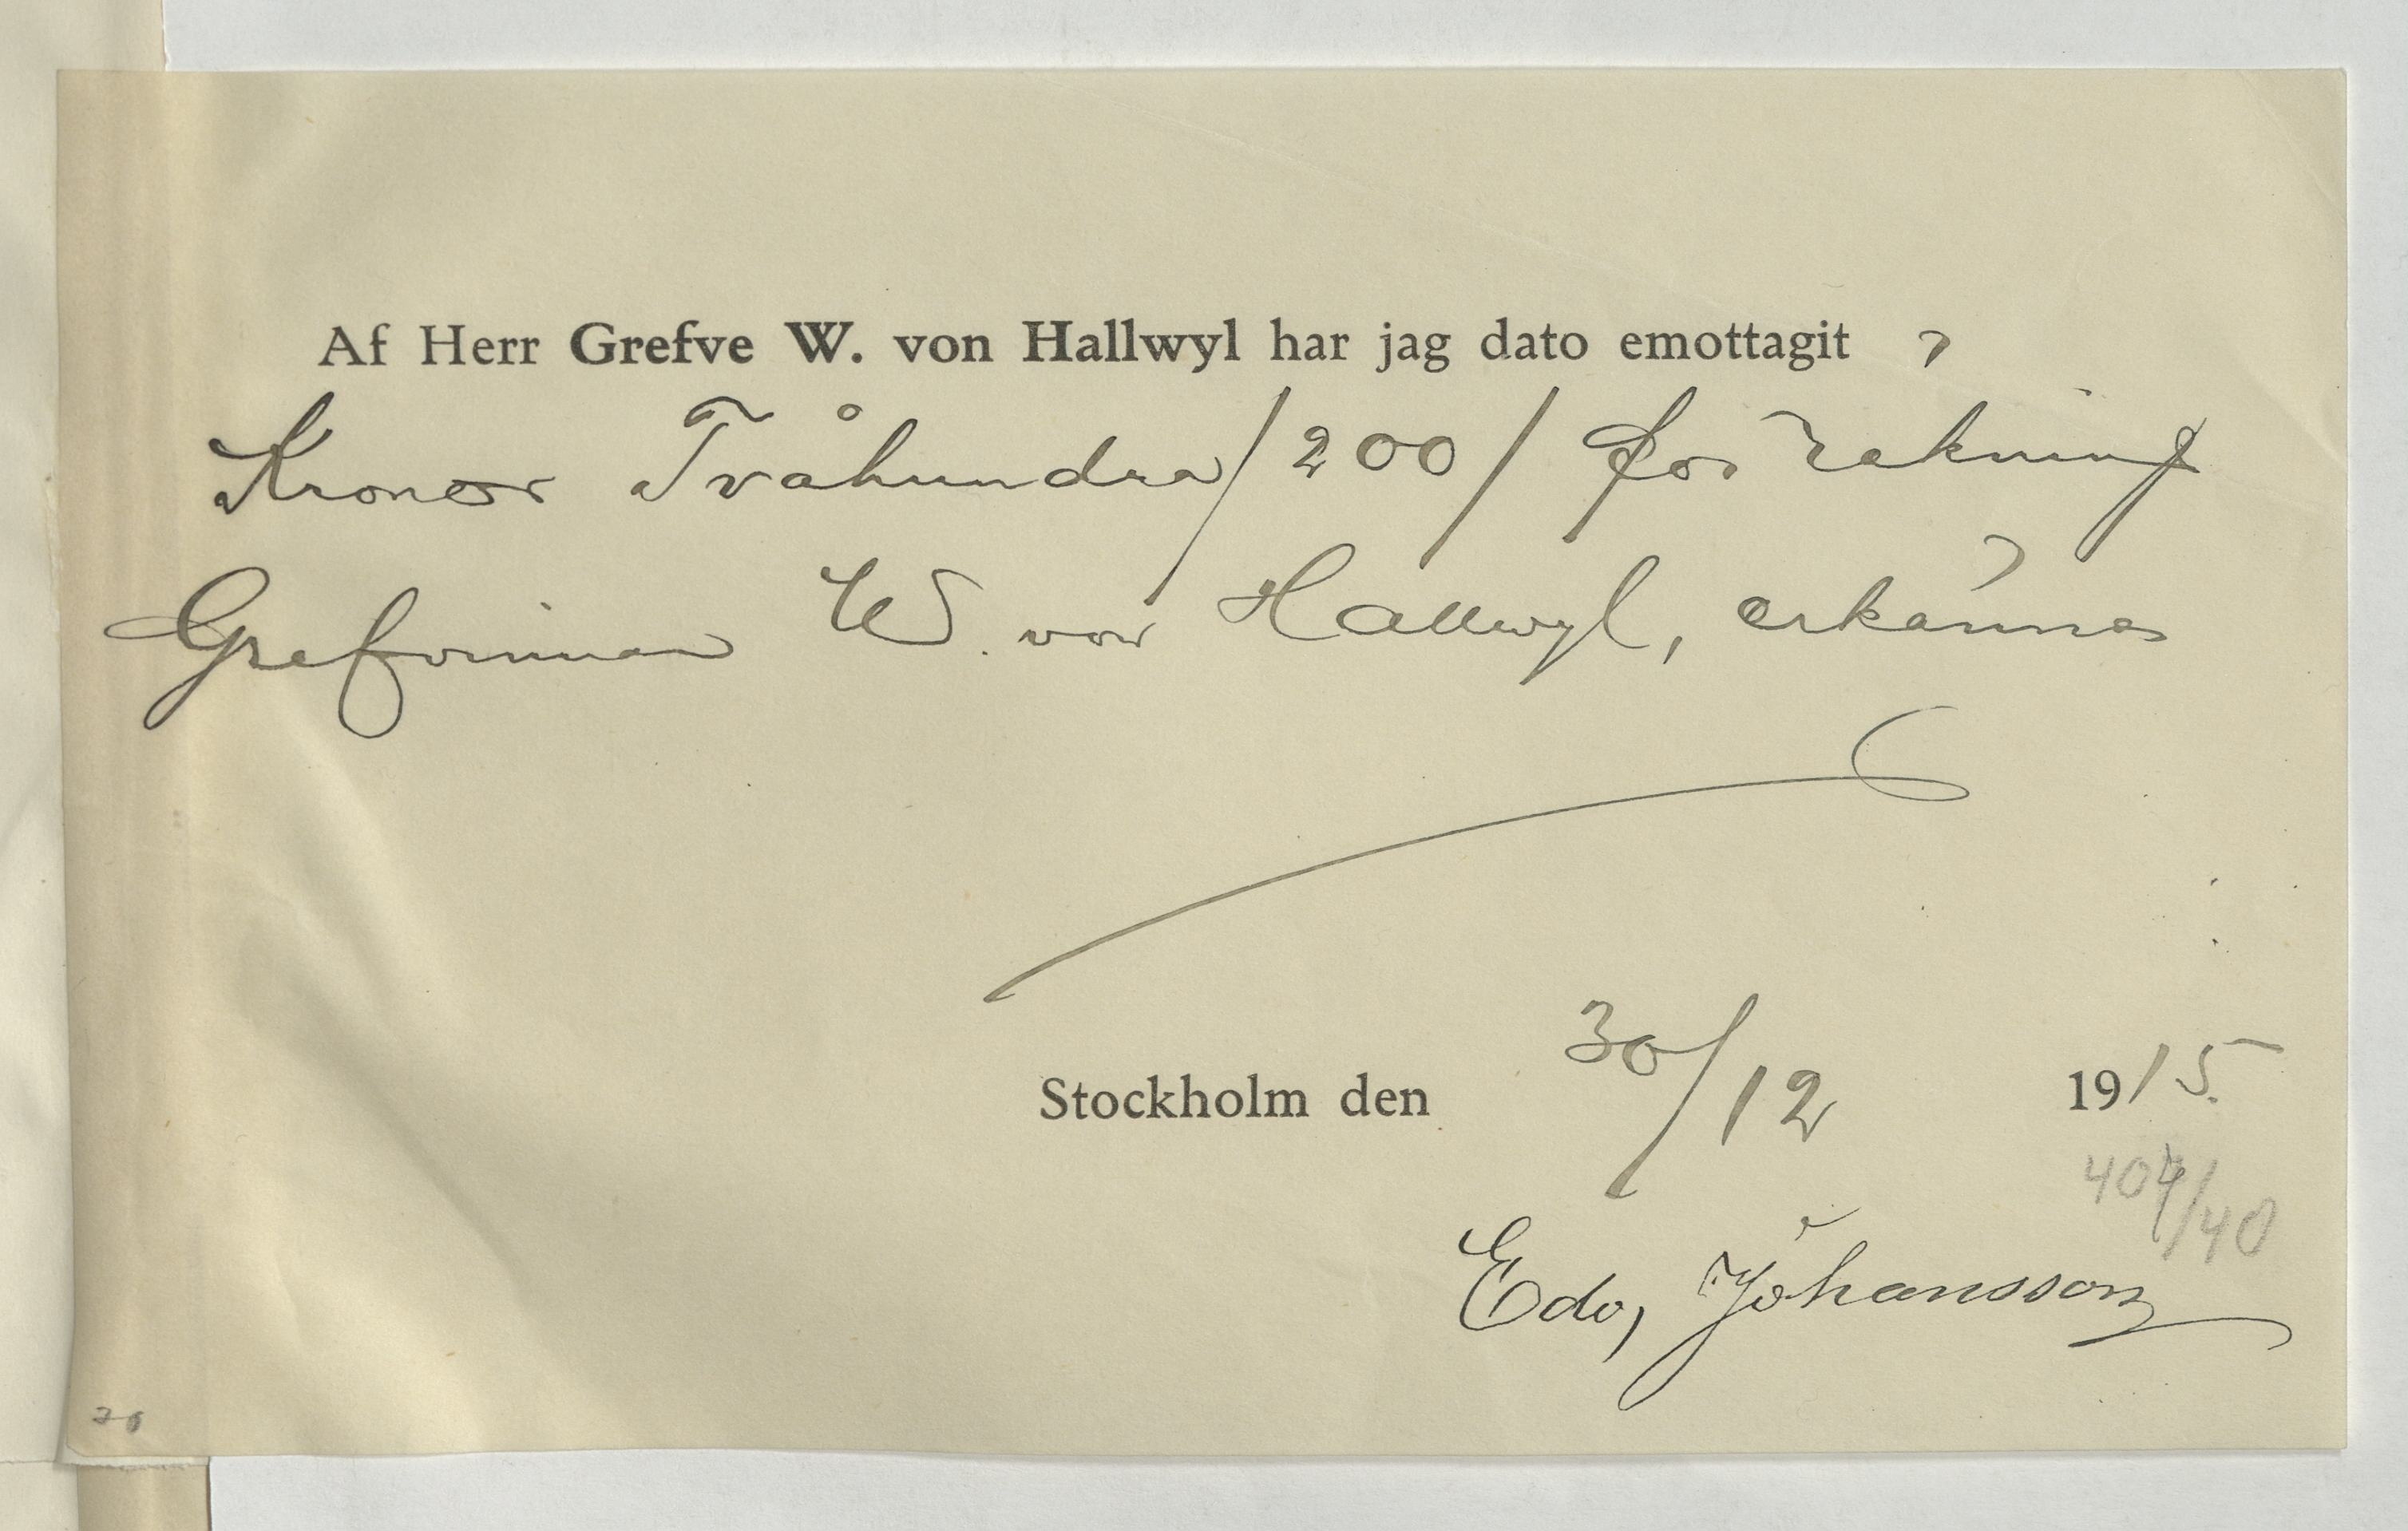 Af Herr Grefve W. von Hallwyl har jag dato emottagit
Kronor Tvåhundra /200/ för räkning
Grefvinnan W. von Hallwyl, erkännes
Stockholm den 30/12 1915.
40
Edv, Johansson